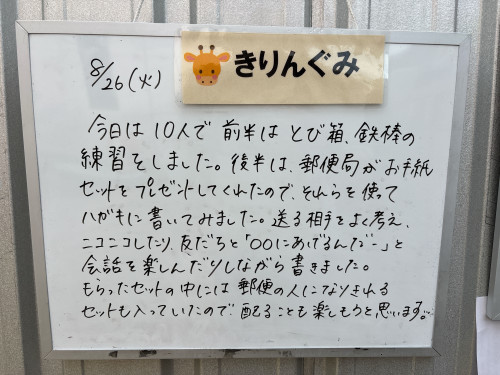 8/26(火)
きりんぐみ
今日は10人で前半はとび箱、鉄棒の
練習をしました。後半は、郵便局がお手紙
セットをプレゼントしてくれたので、それらを使って
ハガキに書いてみました。送る相手をよく考え、
ニコニコしたり、友だちと「〇〇にあげるんだー」と
会話を楽しんだりしながら書きました。
もらったセットの中には郵便の人になりきれる
セットも入っていたので、配ることも楽しもうと思います。